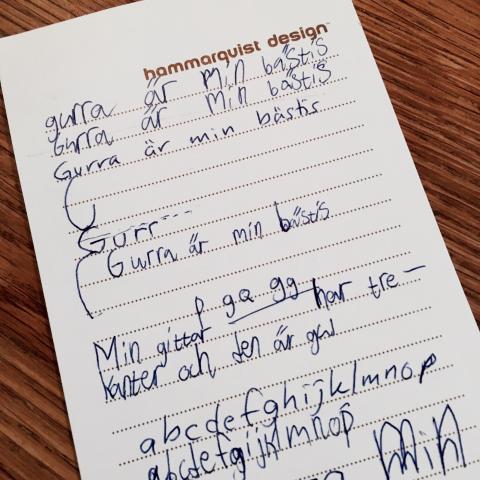 hammarquist design
gurra är min bästis
Gurra är min bästis
Gurra är min bästis
Gurr---
Gurra är min bästis
p ga gg
Min gittar har tre-
kanter och den är gul
abcdefghijklmnop
abcdefgijklmnop
Min